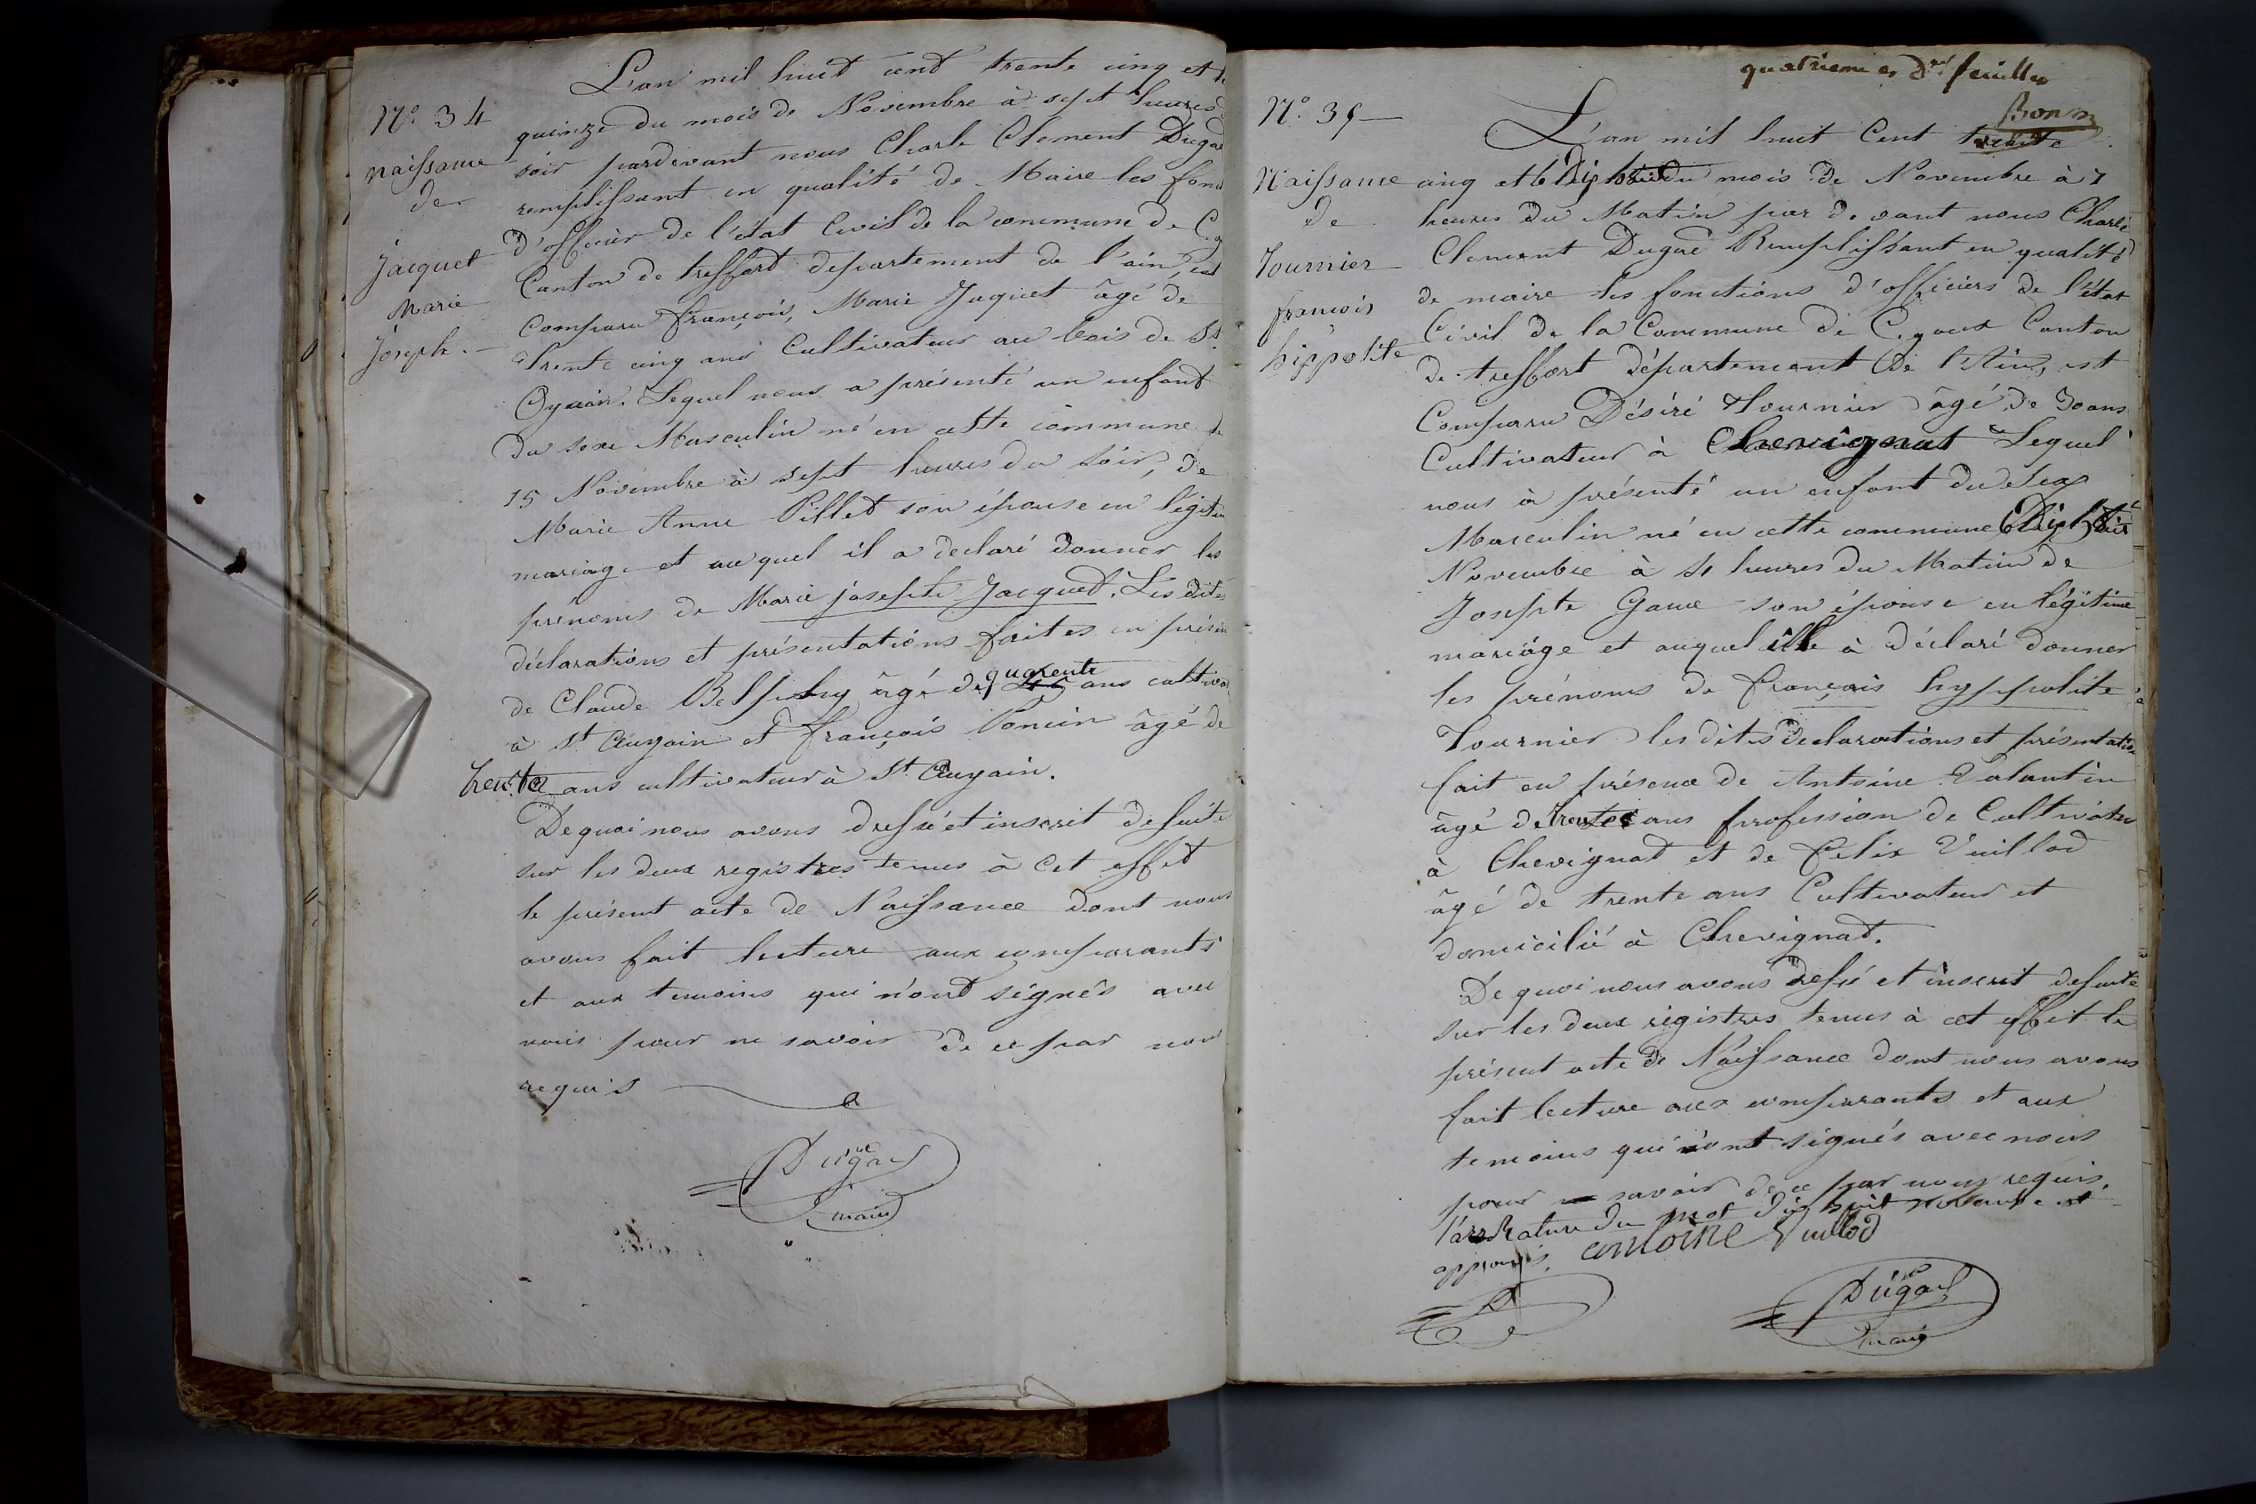 N° 34
naissance
de
Jacquet
Marie
Joseph. —
L'an mil huit cent trente cinq et le
quinze du mois de Novembre à sept heures d
soir pardevant nous Charle Clement Dugas
remplissant en qualité de Maire les fonc
d'officier de l'état Civil de la commune de C
Canton de treffort departement de l'ain, est
Comparu françois, Marie Jaquet âgé de
trente cinq ans Cultivateur au bois de St
Oyain. Lequel nous a présenté un enfant
du sexe Masculin né en cette commune le
15 Novembre à sept heures du soir, de
Marie Anne Pillet son épouse en légitim
mariage et auquel il a declaré donner les
prénoms de Marie josephe Jacquet. Les dites
déclarations et présentations faites en présen
de Claude Belpuhy âgé de quarente ans cultiva
à St Auyain et françois Poncin âgé de
trente ans cultivateur à St Auyain.
De quoi nous avons dressé et inscrit desuite
sur les deux registres tenus à cet effet
le présent acte de Naissance dont nous
avons fait lecture aux comparants
et aux temoins qui n'ont signés avec
nous pour ne savoir de ce par nous
requis
Dugas
maire
quatrieme et der feuillet
Bonn
N° 35 —
Naissance
de
Tournier
francois
hippolite
L'an mil huit Cent trente
cinq et le Dix huit du mois de Novembre à 7
heures du Matin par devant nous Charle
Clement Dugas Remplissant en qualité
de maire les fonctions d'officiers de l'état
Civil de la Commune de Cigneux Canton
de treffort Département De l'Ain, est
Comparu Désiré Tournier âgé de 30 ans
Cultivateur à Chevignat Lequel
nous à présenté un enfant du sex
Masculin né en cette commune le Dix huit
Novembre à 4 heures du Matin de
Josepte Game son épouse en légitime
mariâge et auquel ille à déclaré donner
les prénoms de françois hyppolite
Tournier les dites declarations et présentation
fait en présence de Antoine Valantin
âgé de trente ans profession de Cultivateur
à Chevignat et de felix Vuillod
âgé de trente ans Cultivateur et
domicilié à Chevignat.
De quoi nous avons dressé et inscrit desuite
sur les deux registres tenus à cet effet le
présent acte de Naissance dont nous avons
fait lecture aux comparants et aux
temoins qui n'ont signés avec nous
pour ne savoir de ce par nous requis.
rature du mot dix huit novembre et
approuvé. antoine Vuillod
D
Dugas
maire